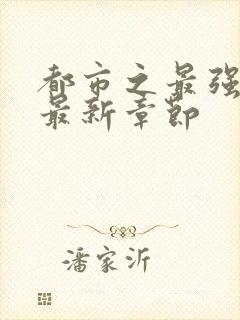 都市之最强
最新章节
潘家沂